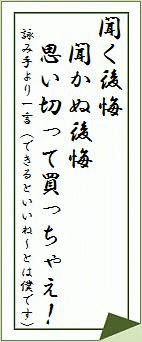 聞く後悔
聞かぬ後悔
思い切って買っちゃえ！
詠み手より一言（できるといいね～とは僕です）